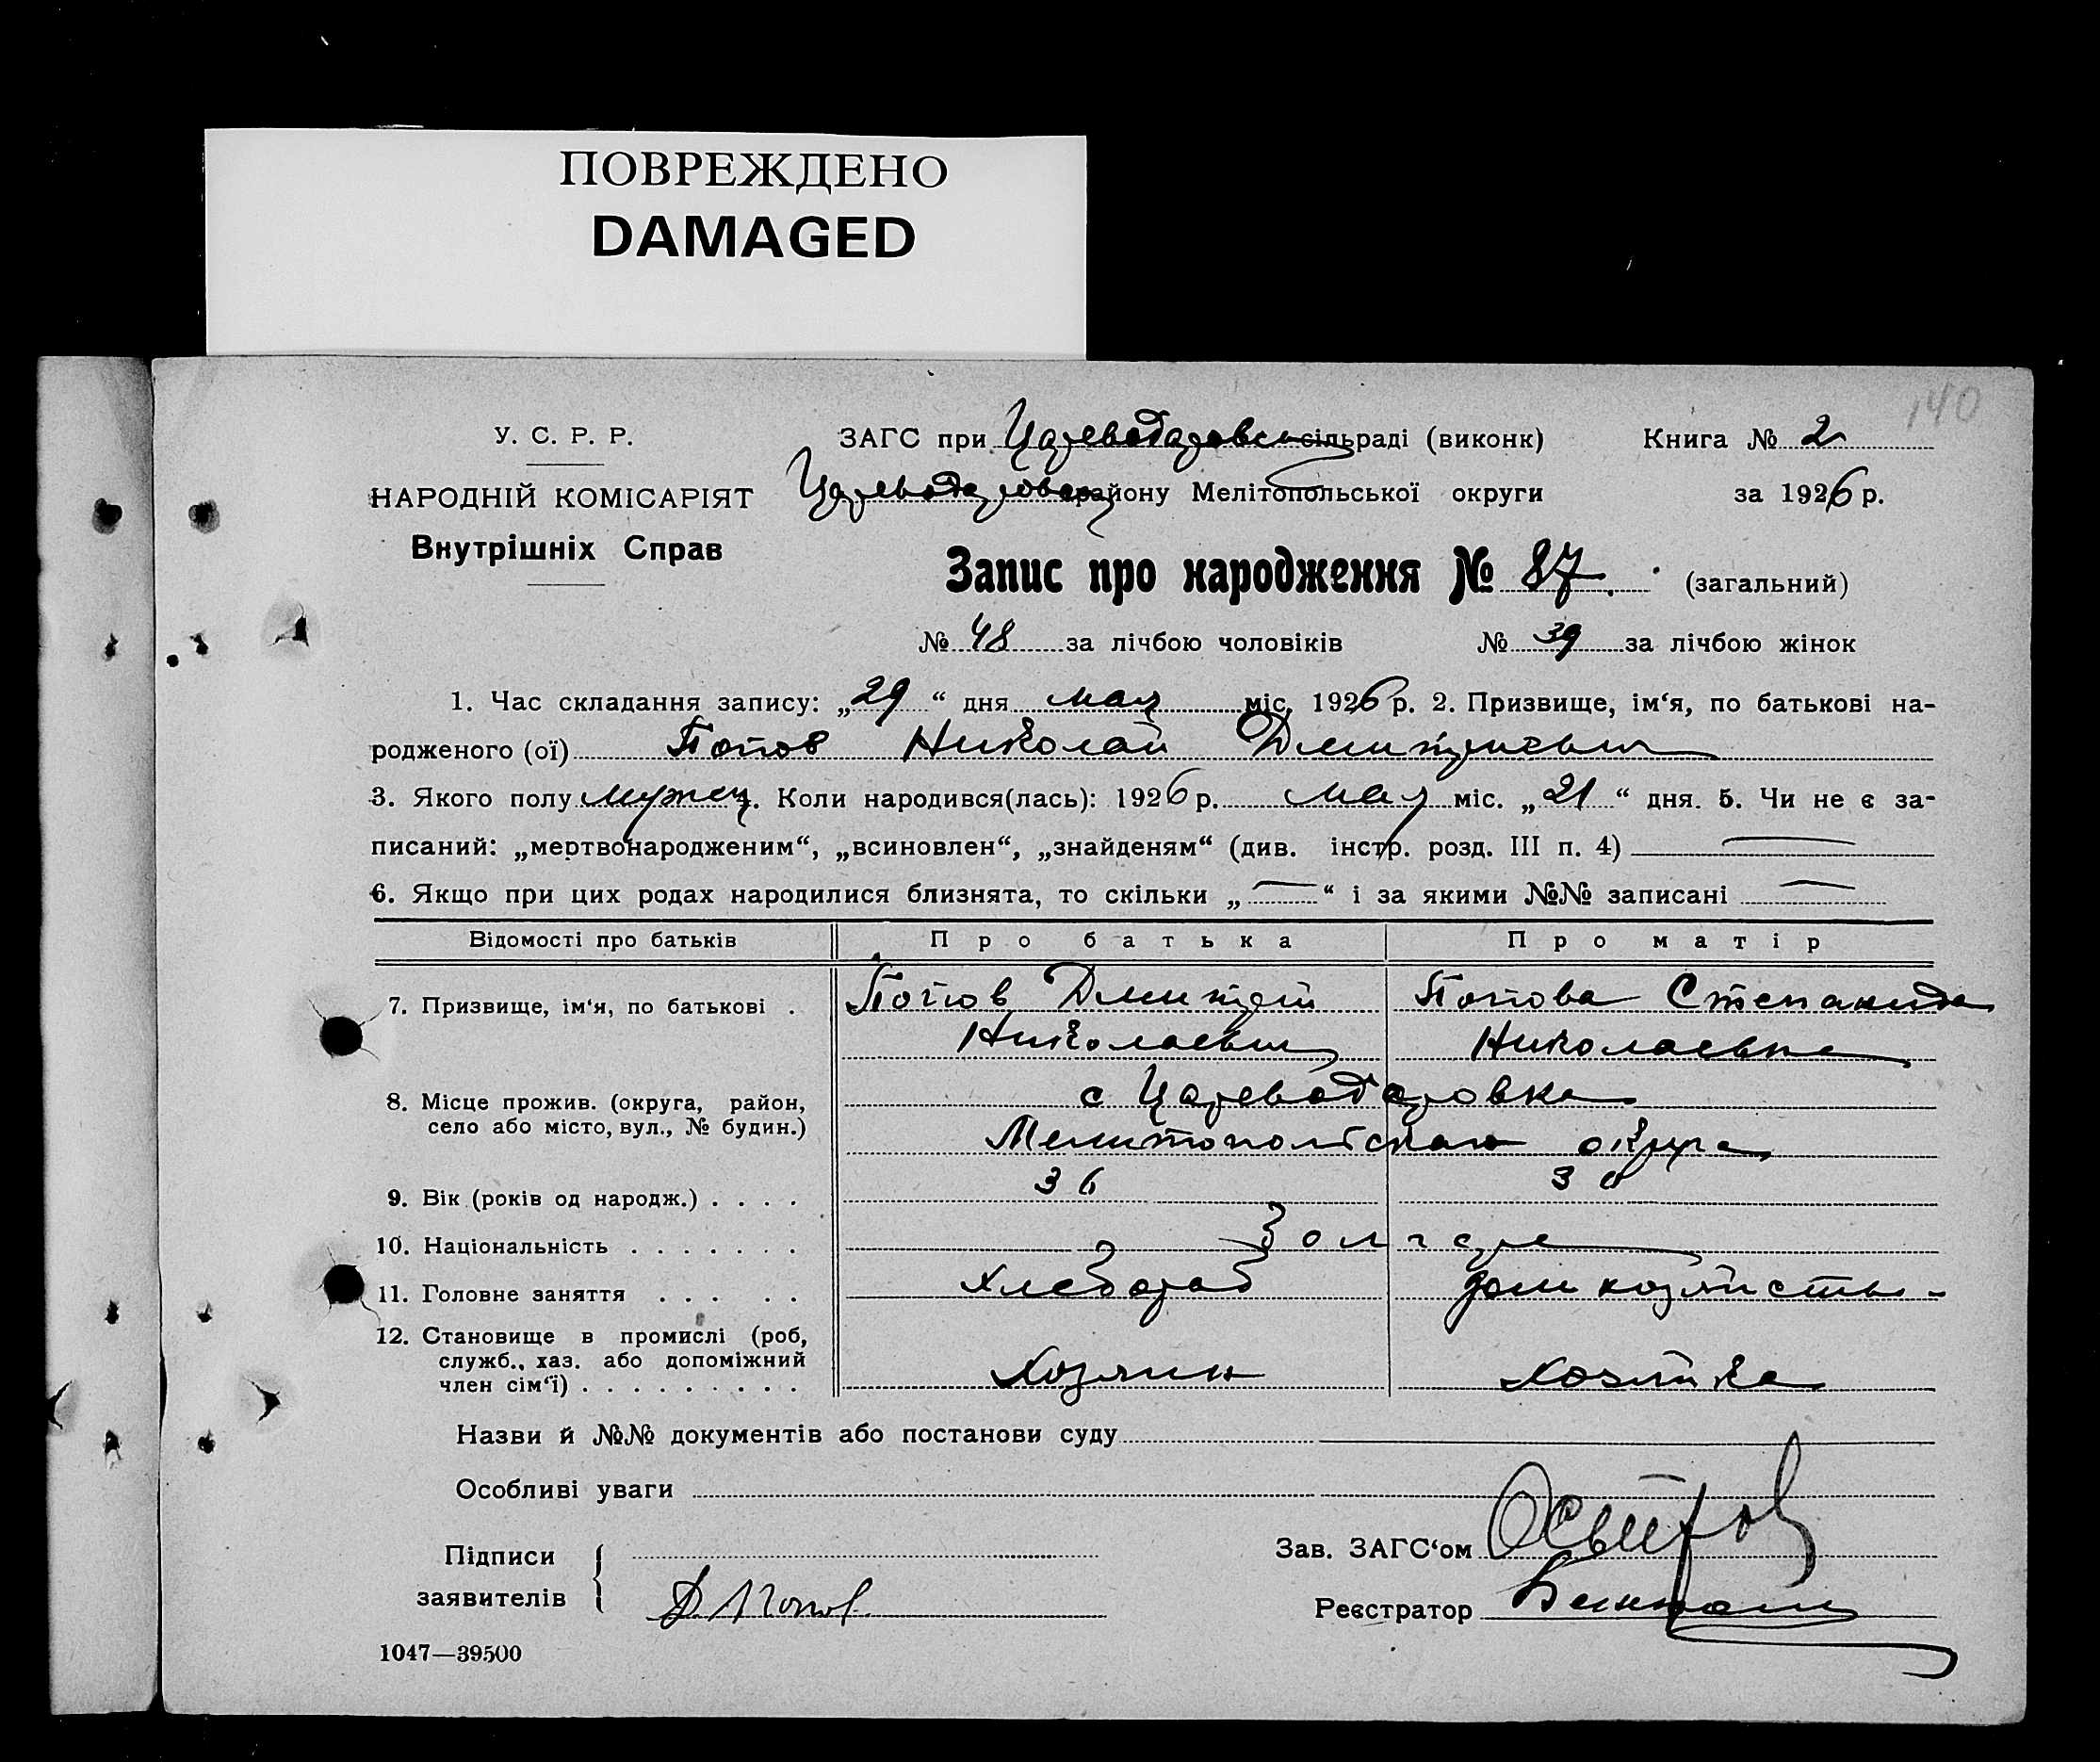 ПОВРЕЖДЕНО
DAMAGED
140
У. С. Р. Р.
НАРОДНІЙ КОМІСАРІЯТ
Внутрішніх Справ
ЗАГС при Цареводаровск сільраді (виконк)
Книга № 2
Цареводаровск району Мелітопольської округи
за 1926 р.
Запис про народження № 87. (загальний)
№ 48 за лічбою чоловіків № 39 за лічбою жінок
1. Час складання запису: „29“ дня мая міс. 1926 р. 2. Призвище, ім‘я, по батькові на-
родженого (ої) Попов Николай Дмитриевич
3. Якого полу мужск. Коли народився(лась): 1926 р. мая міс. „21“ дня. 5. Чи не є за-
писаний: „мертвонародженим“, „всиновлен“, „знайденям“ (див. інстр. розд. III п. 4) —
6. Якщо при цих родах народилися близнята, то скільки „—“ і за якими №№ записані —
Відомості про батьків Про батька Про матір
7. Призвище, ім‘я, по батькові . Попов Дмитрий Попова Степанида
Николаевич Николаевна
8. Місце прожив. (округа, район,
село або місто, вул., № будин.)
с Цареводаровка
Мелитопольская округа
9. Вік (років од народж.) . . . . 36 30
10. Національність . . . . . . . Болгаре
11. Головне заняття . . . . . Хлебороб дом хозяйство
12. Становище в промислі (роб,
служб., хаз. або допоміжний
член сім‘ї) . . . . . . . . . Хозяин хозяйка
Назви й №№ документів або постанови суду
Особливі уваги
Підписи
заявителів
Д. Попов
Зав. ЗАГС‘ом
Реєстратор
1047—39500